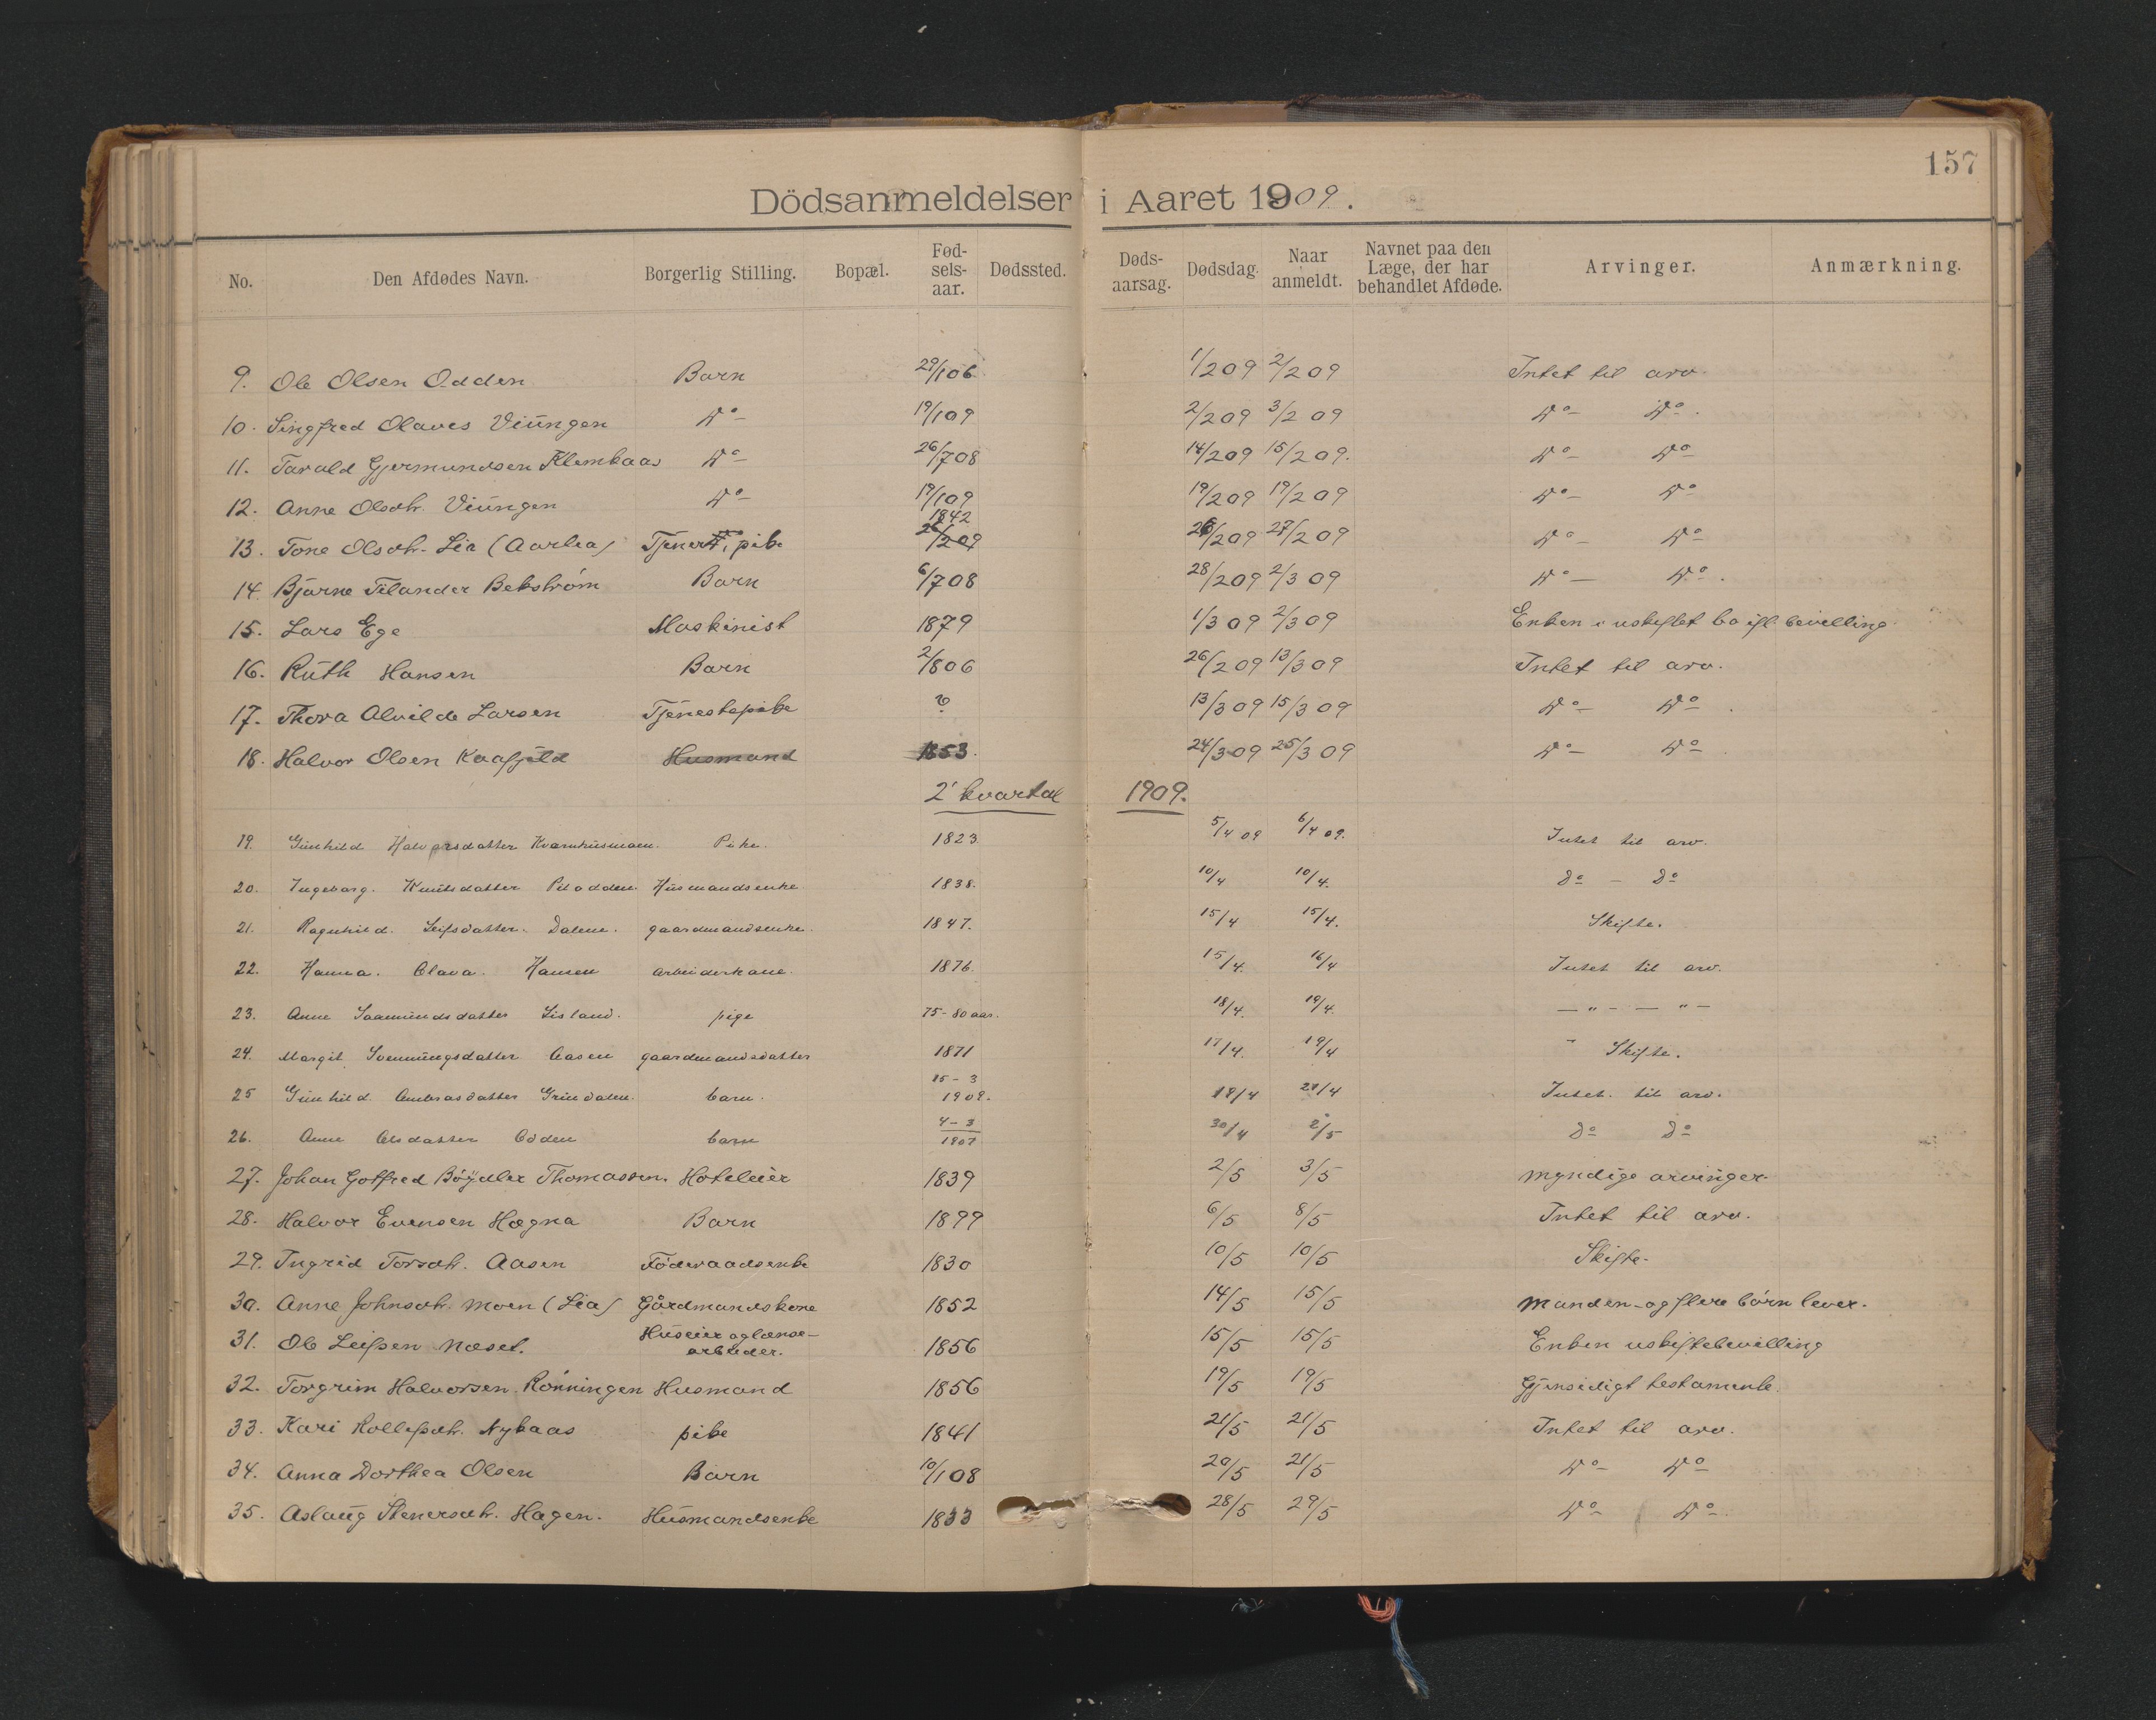 157
Dödsanmeldelser i Aaret 1909.
No. Den Afdødes Navn. Borgerlig Stilling. Bopæl. Fød-sels-aar. Dødssted. Døds-aarsag. Dødsdag. Naar anmeldt. Navnet paa den Læge, der har behandlet Afdøde. Arvinger. Anmærkning.
9. Ole Olsen Odden Barn 29/1 06 1/2 09 2/2 09 Intet til arv.
10. Singfred Olaves Viüngen Do 19/1 09 2/2 09 3/2 09 Do Do.
11. Tarald Gjermundsen Klembaas Do 26/7 08 14/2 09 15/2 09. Do Do
12. Anne Olsdtr. Viüngen Do 19/1 09 19/2 09 19/2 09 Do Do
13. Tone Olsdtr. Lia (Aarlia) Tjener pike 1842 26/2 09 27/2 09 Do Do
14. Bjarne Filander Bekström Barn 6/7 08 28/2 09 2/3 09 Do Do.
15. Lars Ege Maskinist 1879 1/3 09 2/3 09 Enken i uskiftet bo ifl. bevilling.
16. Rüth Hansen Barn 2/8 06 26/2 09 13/3 09 Intet til arv.
17. Thora Alvilde Larsen Tjenestepike ? 13/3 09 15/3 09 Do Do.
18. Halvor Olsen Kaafjeld Husmand 1853. 24/3 09 25/3 09 Do Do
2' kvartal 1909.
19. Günhild Halvorsdatter Kvarnhüsmoen. Pike. 1823 5/4 09 6/4 09. Intet til arv.
20. Ingeborg. Knütsdatter Pilodden. Hüsmandsenke 1838. 10/4 10/4. Do - Do
21. Ragnhild. Leifsdatter. Dalene. gaardmandsenke. 1847. 15/4 15/4. Skifte.
22. Hanna. Olava. Hansen arbeiderkone. 1876. 15/4. 16/4 Intet til arv.
23. Anne Saamündsdatter Lisland. pige 75-80 aar. 18/4. 19/4. — " — — " —
24. Margit Svennüngsdatter Aasen gaardmandsdatter 1871 17/4. 19/4 Skifte.
25 Günhild. Andrasdatter Grindalen. barn. 15-3 1909. 19/4 21/4 Intet. til arv.
26. Anne Olsdatter Odden barn 4-3 1907 30/4 2/5 Do Do
27. Johan Gotfred Böydler Thomassen. Hoteleier 1839 2/5 3/5 myndige arvinger.
28. Halvor Evensen Hægna Barn 1899 6/5 8/5 Intet til arv.
29. Ingrid Torsdtr. Aasen Föderaadsenke 1830 10/5 10/5 Skifte.
30. Anne Johnsdtr. Moen (Lia) Gårdmandskone 1852 14/5 15/5 Manden og flere börn lever.
31. Ole Leifsen Næset. Hüseier og lænse-arbeider. 1856 15/5 15/5 Enken uskiftebevilling
32. Torgrim Halvorsen Rönningen Husmand 1856 19/5 19/5 Gjensidigt testamente.
33. Kari Rollefsdtr. Nybaas pike 1841 21/5 21/5 Intet til arv.
34. Anna Dorthea Olsen Barn 10/1 08 20/5 21/5 Do Do
35. Aslaug Stenersdtr. Hagen. Hüsmandsenke 1833 28/5 29/5 Do Do.